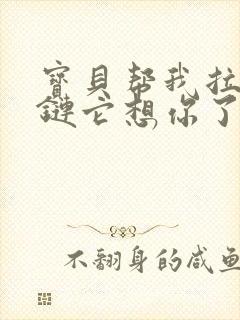 寶貝帮我拉
鏈它想你了
不翻身的咸鱼